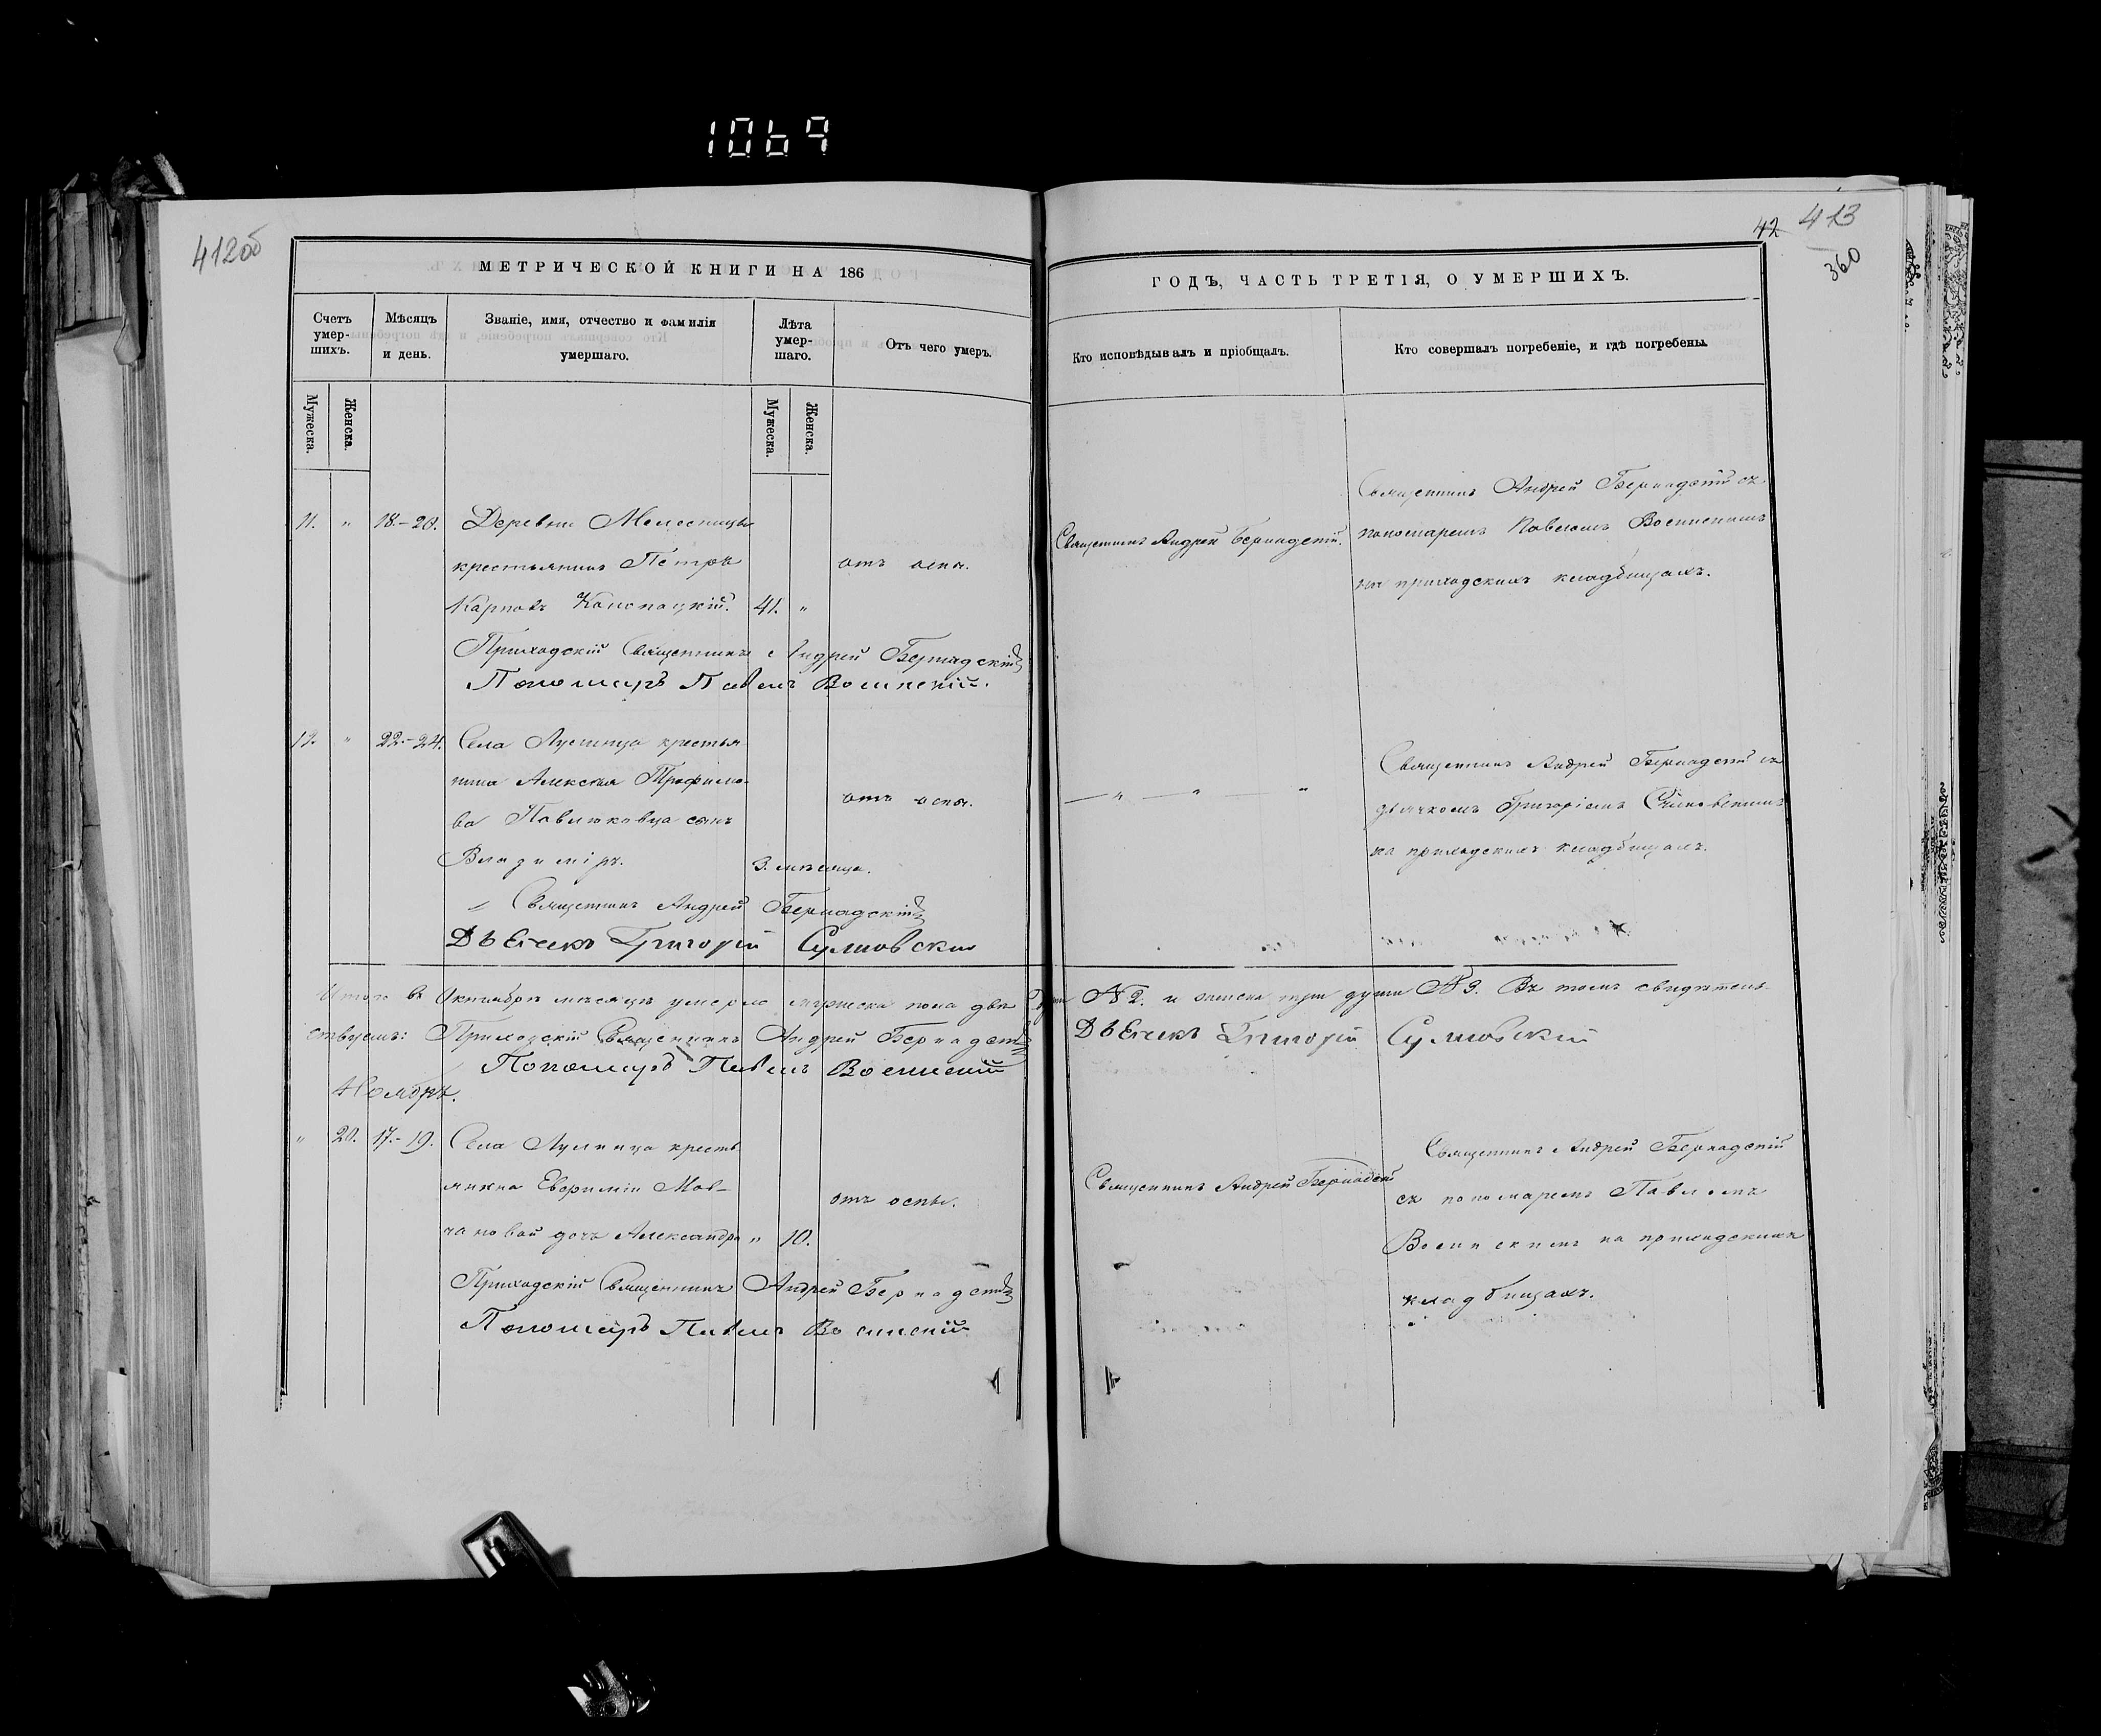 1069
412об
42 413
360
МЕТРИЧЕСКОЙ КНИГИ НА 186
ГОДЪ, ЧАСТЬ ТРЕТІЯ, О УМЕРШИХЪ.
Счетъ умер-шихъ.
Мѣсяцъ и день.
Званіе, имя, отчество и фамилія умершаго.
Лѣта умер-шаго.
Отъ чего умеръ.
Кто исповѣдывалъ и пріобщалъ.
Кто совершалъ погребеніе, и гдѣ погребены.
Мужеска.
Женска.
Мужеска.
Женска.
11. " 18.-20. Деревни
крестьянинъ Петръ
Карповъ 41. "
отъ оспы.
Священникъ Андрей Бернадскій.
Священникъ Андрей Бернадскій съ
пономаремъ Павломъ
на приходскихъ кладбищахъ.
Приходскій Священникъ Андрей Бернадскій
Пономарь Павелъ
12. " 22.-24. Села Лунинца крестья-
нина Алексѣя Трофимо-
ва Павлюковца сынъ
Владиміръ. 3. мѣсяца.
отъ оспы.
— " — " "
Священникъ Андрей Бернадскій съ
дьячкомъ Григоріемъ
на приходскихъ кладбищахъ.
Священникъ Андрей Бернадскій
Дьячекъ Григорій
Итого въ Октябрѣ мѣсяцѣ умерло мужеска пола двѣ души № 2. и женска три души № 3. Въ томъ свидѣтель-
ствуемъ: Приходскій Священникъ Андрей Бернадскій
Дьячекъ Григорій
Пономарь Павелъ
Ноябрь.
" 20. 17.-19. Села Лунинца кресть
янки Евфиміи Мов-
чановой дочь Александра " 10.
отъ оспы.
Священникъ Андрей Бернадскій
Священникъ Андрей Бернадскій
съ пономаремъ Павломъ
на приходскихъ
кладбищахъ.
Приходскій Священникъ Андрей Бернадскій
Пономарь Павелъ